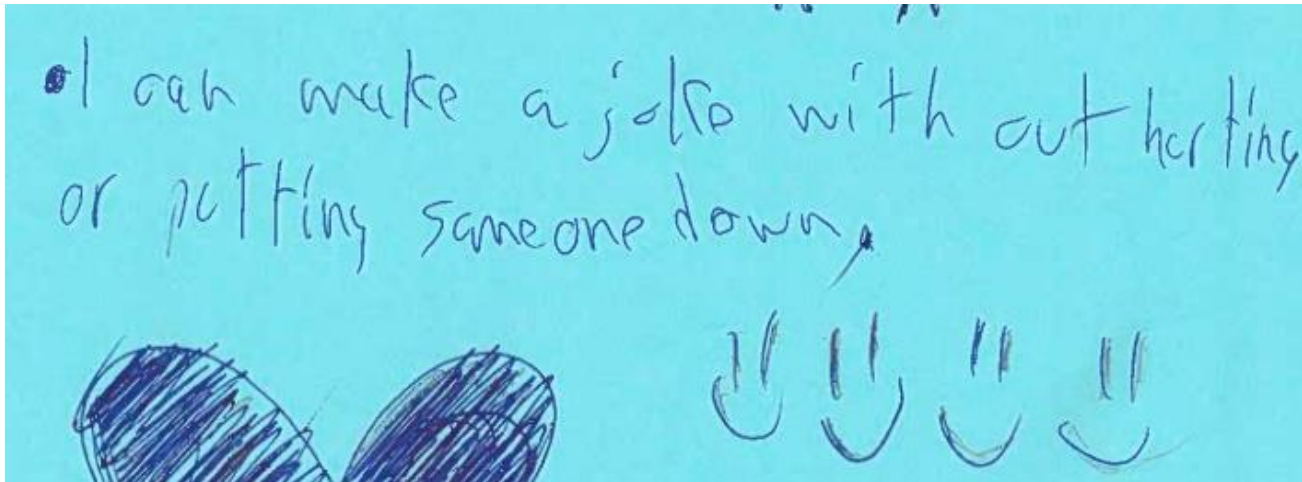 •I can make a joke with out herting
or putting someone down.